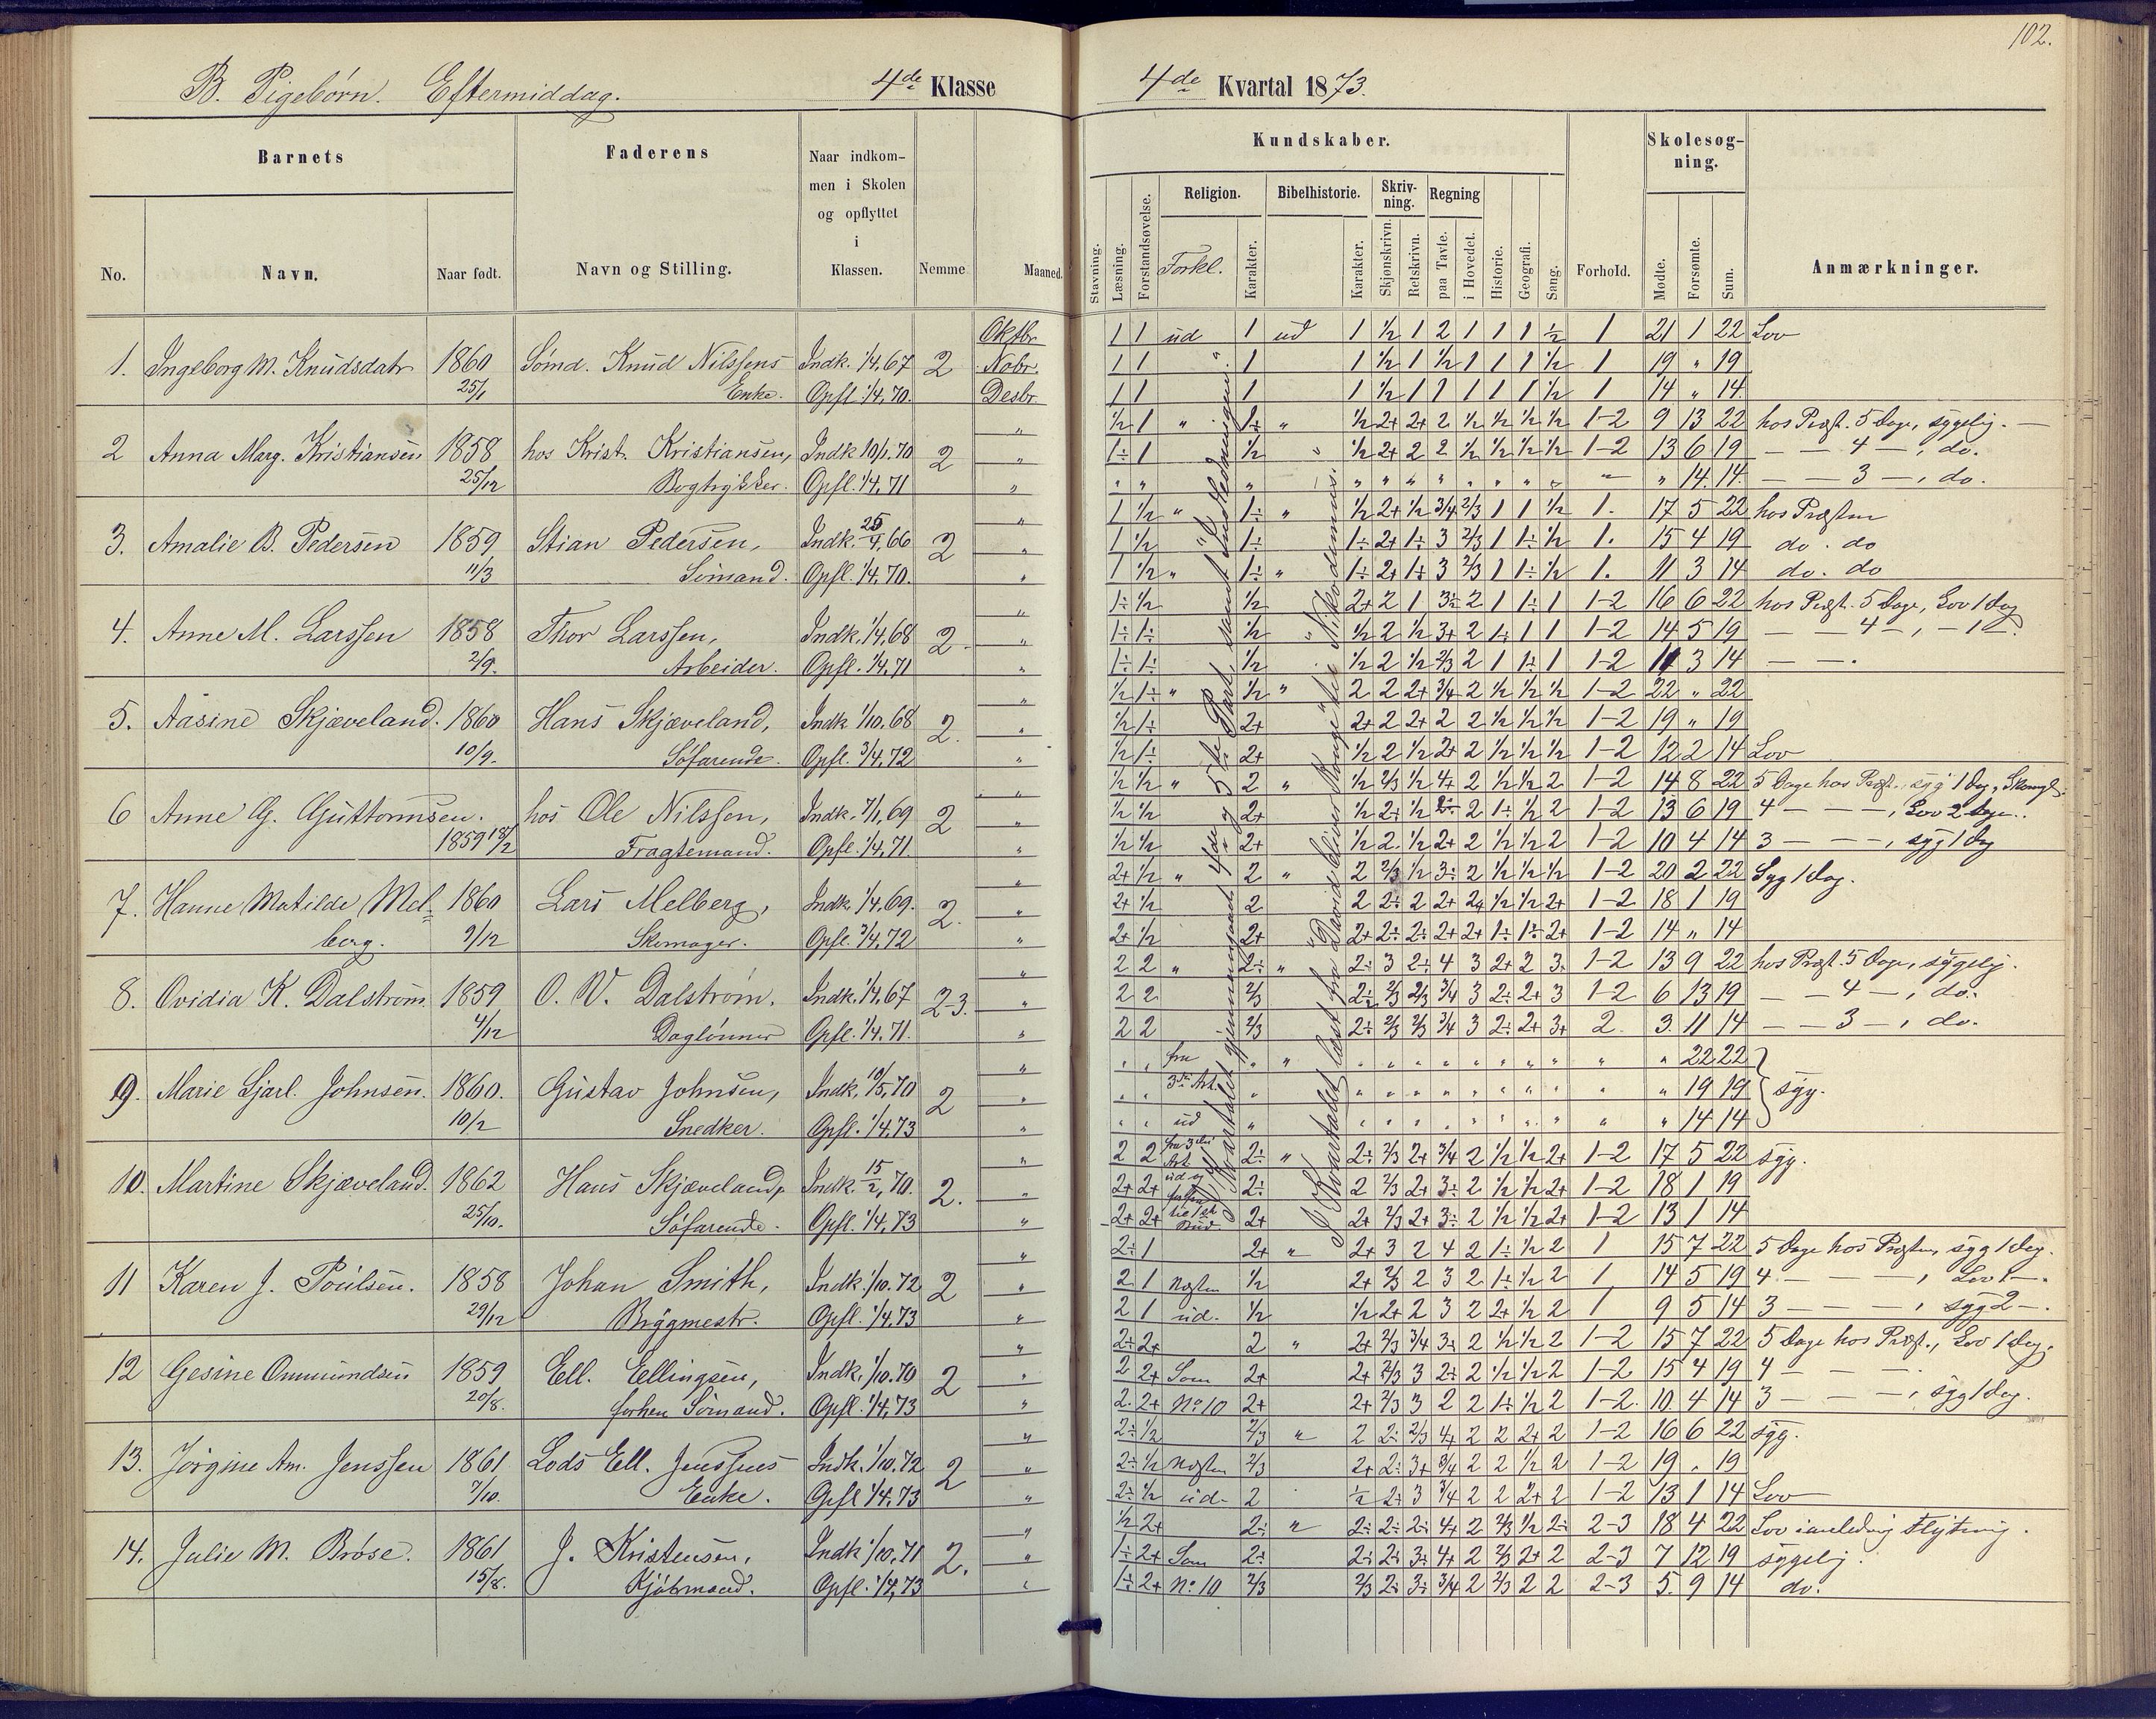 102.
B. Pigebörn. Eftermiddag. 4de Klasse
4de Kvartal 1873.
Barnets
Faderens
Naar indkommen i Skolen og opflyttet i Klassen.
Nemme
Maaned.
No.
Navn.
Naar født.
Navn og Stilling.
Kundskaber.
Skolesøgning.
Stavning. Læsning. Forstandsøvelse.
Religion. Forkl. Karakter.
Bibelhistorie. Karakter.
Skrivning. Skjønskrivn. Retskrivn.
Regning paa Tavle. i Hovedet.
Historie. Geografi. Sang.
Forhold.
Mødte. Forsømte. Sum.
Anmærkninger.
1. Ingeborg M. Knudsdatr 1860 Sömd. Knud Nilssens Indk. 1/4,67 2
25/1 Enke. Opfl. 1/4,70.
Oktbr. 1 1 ud 1 ud 1 1/2 1 2 1 1 1 1/2 1 21 1 22 Lov
Nobr. 1 1 " 1 1 1/2 1 1/2 1 1 1 1/2 1 19 " 19
Desbr. 1 1 1 1 1/2 1 1 1 1 1 1/2 1 14 " 14
2 Anna Marg. Kristiansen 1858 hos Krist. Kristiansen, Indk 10/1.70 2
25/12 Bogtrykker. Opfl. 1/4,71
1/2 1 " 1÷ " 1/2 2+ 2+ 2 1/2 1/2 1/2 1/2 1-2 9 13 22 hos Præst. 5 Dage, sygelig.
1÷ 1 1/2 1/2 2+ 2 2 1/2 1/2 1/2 1/2 1-2 13 6 19 — — 4 —, do.
" 14. 14. — — 3 —, do.
3. Amalie B. Pedersen 1859 Stian Pedersen, Indk. 25/4,66 2
11/3 Sömand. Opfl. 1/4.70.
1 1/2 " 1÷ " 1/2 2+ 1/2 3/4 2/3 1 1 1/2 1. 17 5 22 hos Præsten
1 1/2 1÷ 1÷ 2+ 1÷ 3 2/3 1 1÷ 1/2 1. 15 4 19 do. do
1 1/2 " 1÷ " 1÷ 2+ 1÷ 3 2/3 1 1÷ 1/2 1. 11 3 14 do. do
4. Anne M. Larssen 1858 Thor Larssen, Indk. 1/4,68 2.
2/9. Arbeider. Opfl. 1/4,71
1÷ 1/2 1/2 2+ 2 1 3÷ 2 1 1÷ 1 1-2 16 6 22 hos Præst. 5 Dage, Lov 1 Dag
1÷ 1÷ 1/2 1/2 2 1/2 3+ 2 1÷ 1 1 1-2 14 5 19 — — 4 —, — 1 —.
1÷ 1÷ 1/2 1/2 2 1/2 2/3 2 1 1÷ 1 1-2 11 3 14 — —.
5. Aasine Skjæveland. 1860 Hans Skjæveland, Indk 1/10,68 2.
10/9. Söfarende. Opfl. 3/4,72
1/2 1÷ " 1/2 " 2 2 2+ 3/4 2 1/2 1/2 1/2 1-2 22 " 22
1/2 1÷ 2+ 2+ 2 2+ 2 2 1/2 1/2 1/2 1-2 19 " 19
1/2 1÷ 2+ 1/2 2 1/2 2+ 2 1/2 1/2 1/2 1-2 12 2 14 Lov
6 Anne G. Guttormsen. hos Ole Nilssen, Indk. 7/1,69 2
1859 18/2 Fragtemand. Opfl. 1/4,71.
1/2 1/2 " 2 " 1/2 2/3 1/2 4+ 2 1/2 1/2 2 1-2 14 8 22 5 Dage hos Præst., syg 1 Dag,
1/2 1/2 2+ 1/2 2÷ 1/2 2÷ 2 1÷ 1/2 2 1-2 13 6 19 4 — — —, Lov 2 Dage.
1/2 1/2 2+ 1/2 2. 1/2 2+ 2 1/2 1/2 2 1-2 10 4 14 3 — — —, syg 1 Dag
7. Hanne Matilde Mel= 1860 Lars Melberg, Indk. 1/4,69. 2.
berg. 9/12 Skomager. Opfl. 3/4,72
2+ 1/2 " 2 " 2 2/3 1/2 3÷ 2 1/2 1/2 1/2 1-2 20 2 22 Syg 1 Dag.
2+ 1/2 2 2 2÷ 2 2+ 2+ 1/2 1/2 2+ 1-2 18 1 19
2+ 1/2 2+ 2+ 2÷ 2÷ 2+ 2+ 1÷ 1÷ 2+ 1-2 14 " 14
8. Ovidia K. Dalström. 1859 O. V. Dalström. Indk. 1/4,67 2-3.
4/12 Daglönner Opfl. 1/4.71.
2 2 " 2÷ " 2÷ 3 2÷ 4 3 2+ 2 3. 1-2 13 9 22 hos Præst. 5 Dage, sygelig.
2 2 2/3 2÷ 2/3 2/3 3/4 3 2÷ 2+ 3 1-2 6 13 19 — — 4 —, do.
2 2 2/3 2÷ 2/3 2/3 3/4 3 2÷ 2+ 3+ 2. 3. 11 14 — — 3 —, do.
9. Marie Sjarl. Johnsen. 1860. Gustav Johnsen, Indk. 10/5,70 2
10/2 Snedker. Opfl. 1/4.73
fra " 22 22
3die Art. " 19 19 syg.
ud " 14 14
10. Martine Skjæveland. 1862 Hans Skjæveland, Indk. 15/2,70. 2.
25/10. Söfarende. Opfl. 1/4,73
2 2 fra 3die Art. 2÷ " 2÷ 2/3 2+ 3/4 2 1/2 1/2 2+ 1-2 17 5 22 syg.
2+ 2+ ud og 2÷ 2 2/3 2+ 3÷ 2 1/2 1/2 2+ 1-2 18 1 19
2+ 2+ til 1st Bud 2+ 2+ 2/3 2+ 3÷ 2 1/2 1/2 2+ 1-2 13 1 14
11 Karen J. Poulsen. 1858 Johan Smith, Indk. 1/10.72 2
29/12 Bryggmestr. Opfl. 1/4.73
2÷ 1 2+ " 2+ 3 2 4 2 1÷ 1/2 2 1 15 7 22 5 Dage hos Præsten, syg 1 Dag.
2 1 Næsten 1/2 2+ 2/3 2 3 2 1÷ 1/2 2 1 14 5 19 4 — — —, Lov 1 —.
2 1 ud. 1/2 1/2 2+ 2 3 2 2+ 1/2 2 1 9 5 14 3 — — —, syg 2 —.
12 Gesine Ommundsen 1859 Ell. Ellingsen, Indk. 1/10.70 2
20/8. forhen Sömand. Opfl. 1/4,73
2÷ 2+ 2 " 2+ 2/3 3/4 3÷ 2 1/2 1/2 2 1-2 15 7 22 5 Dage hos Præst., Lov 1 Dag.
2 2+ Som 2+ 2+ 2/3 3 2÷ 2 1/2 1/2 2 1-2 15 4 19 4 — — —
2. 2+ No. 10 2+ 2+ 2/3 3 2 2 1÷ 1/2 2 1-2. 10. 4 14 3 — — —, syg 1 Dag.
13. Jörgine Am. Jenssen 1861 Lods Ell. Jenssens Indk. 1/10.72 2
7/10. Enke. Opfl 1/4,73
2÷ 1/2 2/3 " 2 2÷ 2/3 4+ 2 2 2+ 2 1-2 16 6 22 syg.
2÷ 1/2 Næsten 2/3 2+ 2÷ 3+ 3/4 2 2 1/2 2 1-2 19 . 19
2÷ 1/2 ud. 2 1/2 2+ 3 3/4 2 2 2+ 2 1-2 13 1 14 Lov
14. Julie M. Bröse. 1861 J. Kristensen, Indk 1/10,71 2.
15/8. Kjöbmand. Opfl. 1/4,73
1/2 2+ 2÷ " 2÷ 2÷ 2÷ 4+ 2 2/3 1/2 2÷ 2-3 18 4 22 Lov i anledning Flytning.
1÷ 2+ Som 2÷ 2÷ 2÷ 3÷ 4+ 2 2/3 2+ 2 2-3 7 12 19 sygelig.
1÷ 2+ No. 10 2/3 2/3 2÷ 3÷ 3/4 2 2/3 2 2 2-3 5. 9 14 do.
I Kvartalet gjennemgaaet 4de og 5te Part samt Indledningen.
I Kvartalet læst fra David bliver Konge til Nikodemus.